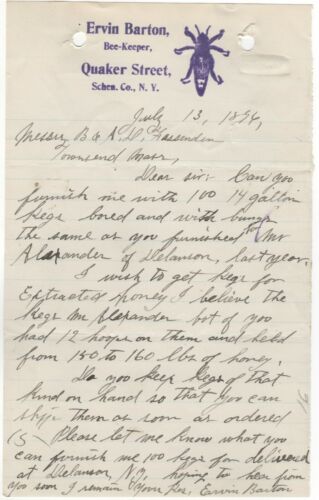 Ervin Barton,
Bee-Keeper,
Quaker Street,
Schen. Co., N. Y.
July 13, 1896,
Messrs B & A. D. Fessenden
Townsend Mass,
Dear sir: Can you
furnish me with 100 14 gallon
Kegs bored and with bungs
the same as you furnished to Mr
Alexander of Delanson, last year.
I wish to get kegs for
Extracted honey I believe the
Kegs Mr Alexander bot of you
had 12 hoops on them and held
from 150 to 160 lbs of honey.
Do you keep kegs of that
kind on hand so that you can
ship them as soon as ordered
Please let me know what you
can furnish me 100 kegs for delivered
at Delanson, N.Y. hoping to hear from
you soon I remain Yours Res. Ervin Barton